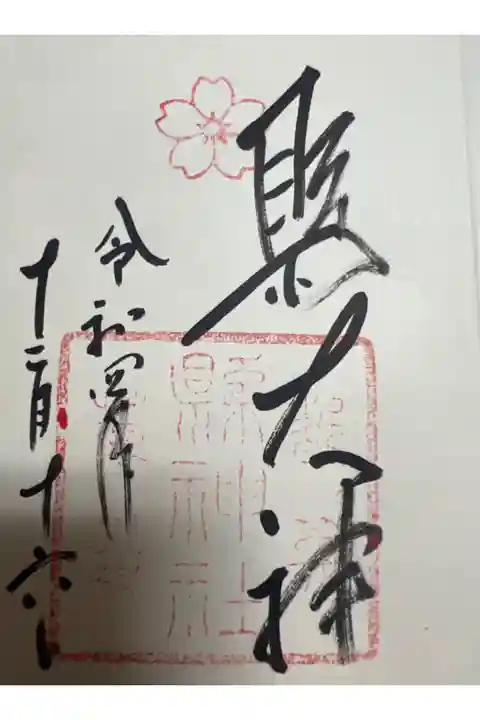 縣大神
令和四年
十二月十六日